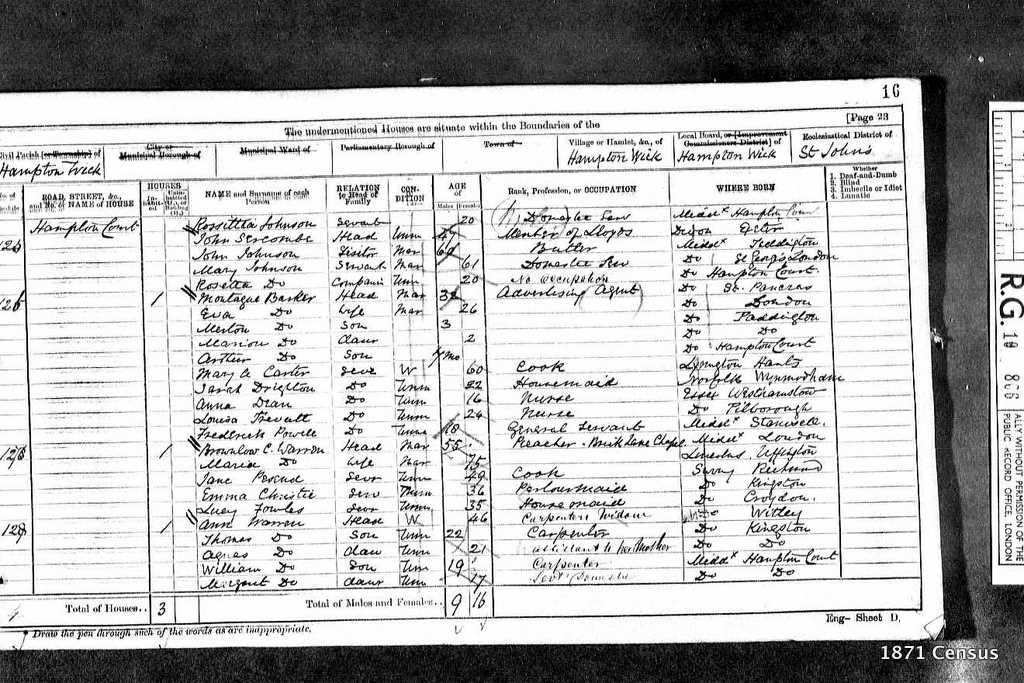 16
[Page 23
The undermentioned Houses are situate within the Boundaries of the
Civil Parish [or Township] of
City or Municipal Borough of
Municipal Ward of
Parliamentary Borough of
Town of
Village or Hamlet, &c., of
Local Board, or [Improvement Commissioners District] of
Ecclesiastical District of
Hampton Wick Hampton Wick Hampton Wick St Johns
ROAD, STREET, &c., and No. or NAME of HOUSE
HOUSES
Inhabited
NAME and Surname of each Person
RELATION to Head of Family
CONDITION
AGE of
Males Females
Rank, Profession, or OCCUPATION
WHERE BORN
Whether
1. Deaf-and-Dumb
2. Blind
3. Imbecile or Idiot
4. Lunatic
Hampton Court Rossittia Johnson Servant 20 Domestic Serv Middx Hampton Court
John Seccombe Head Unm 47 Member of Lloyds Devon Exeter
John Johnson Visitor Mar Butler Middx Teddington
Mary Johnson Servant Mar 61 Domestic Serv Do St Georges London
Rosetta Do Companion Unm 20 No occupation Do Hampton Court
1 Montague Barker Head Mar 32 Advertising Agent Do St. Pancras
Eva Do Wife Mar 26 Do London
Merton Do Son 3 Do Paddington
Marion Do Daur 2 Do Do
Arthur Do Son 7 Mo Do Hampton Court
Mary A Carter Serv W 60 Cook Lymington Hants
Sarah Drighton Do Unm 22 Housemaid Norfolk Wymondham
Anna Dean Do Unm 16 Nurse Essex Walthamstow
Louisa Do Unm 24 Nurse Do
Frederick Do Unm 18 General Servant Middx Stanwell
1 Brownlow C. Warren Head Mar 55 Preacher Brick Lane Chapel Middx London
Maria Do Wife Mar 75 Lincolns. Uffington
Jane Serv Unm 49 Cook Surrey Richmond
Emma Christie Serv Unm 36 Parlourmaid Do Kingston
Lucy Fowles Serv Unm 35 Housemaid Do Croydon
1 Ann Warren Head W 46 Carpenters Widow Do Witley
Thomas Do Son Unm 22 Carpenter Do Kingston
Agnes Do Daur Unm 21 assistant to her Mother Do Do
William Do Son Unm 19 Carpenter Middx Hampton Court
Margaret Do Daur Unm 17 Do Do
Total of Houses.. 3 Total of Males and Females.. 9 16
* Draw the pen through such of the words as are inappropriate.
Eng- Sheet D.
R.G. 10
ALLY WITHOUT PERMISSION OF THE
PUBLIC RECORD OFFICE, LONDON
1871 Census